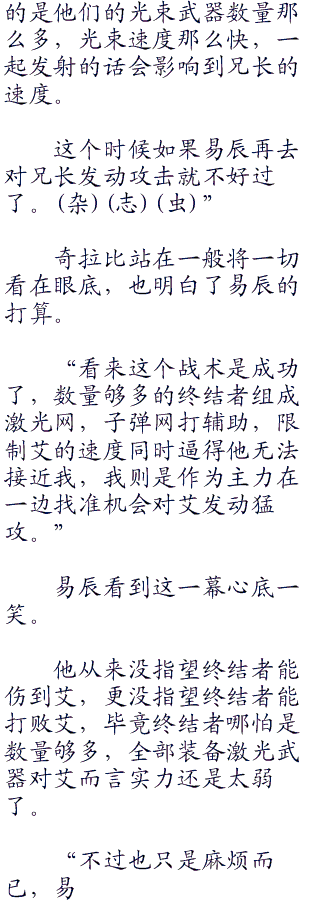 的是他们的光束武器数量那
么多，光束速度那么快，一
起发射的话会影响到兄长的
速度。
这个时候如果易辰再去
对兄长发动攻击就不好过
了。(杂)(志)(虫)”
奇拉比站在一般将一切
看在眼底，也明白了易辰的
打算。
“看来这个战术是成功
了，数量够多的终结者组成
激光网，子弹网打辅助，限
制艾的速度同时逼得他无法
接近我，我则是作为主力在
一边找准机会对艾发动猛
攻。”
易辰看到这一幕心底一
笑。
他从来没指望终结者能
伤到艾，更没指望终结者能
打败艾，毕竟终结者哪怕是
数量够多，全部装备激光武
器对艾而言实力还是太弱
了。
“不过也只是麻烦而
已，易